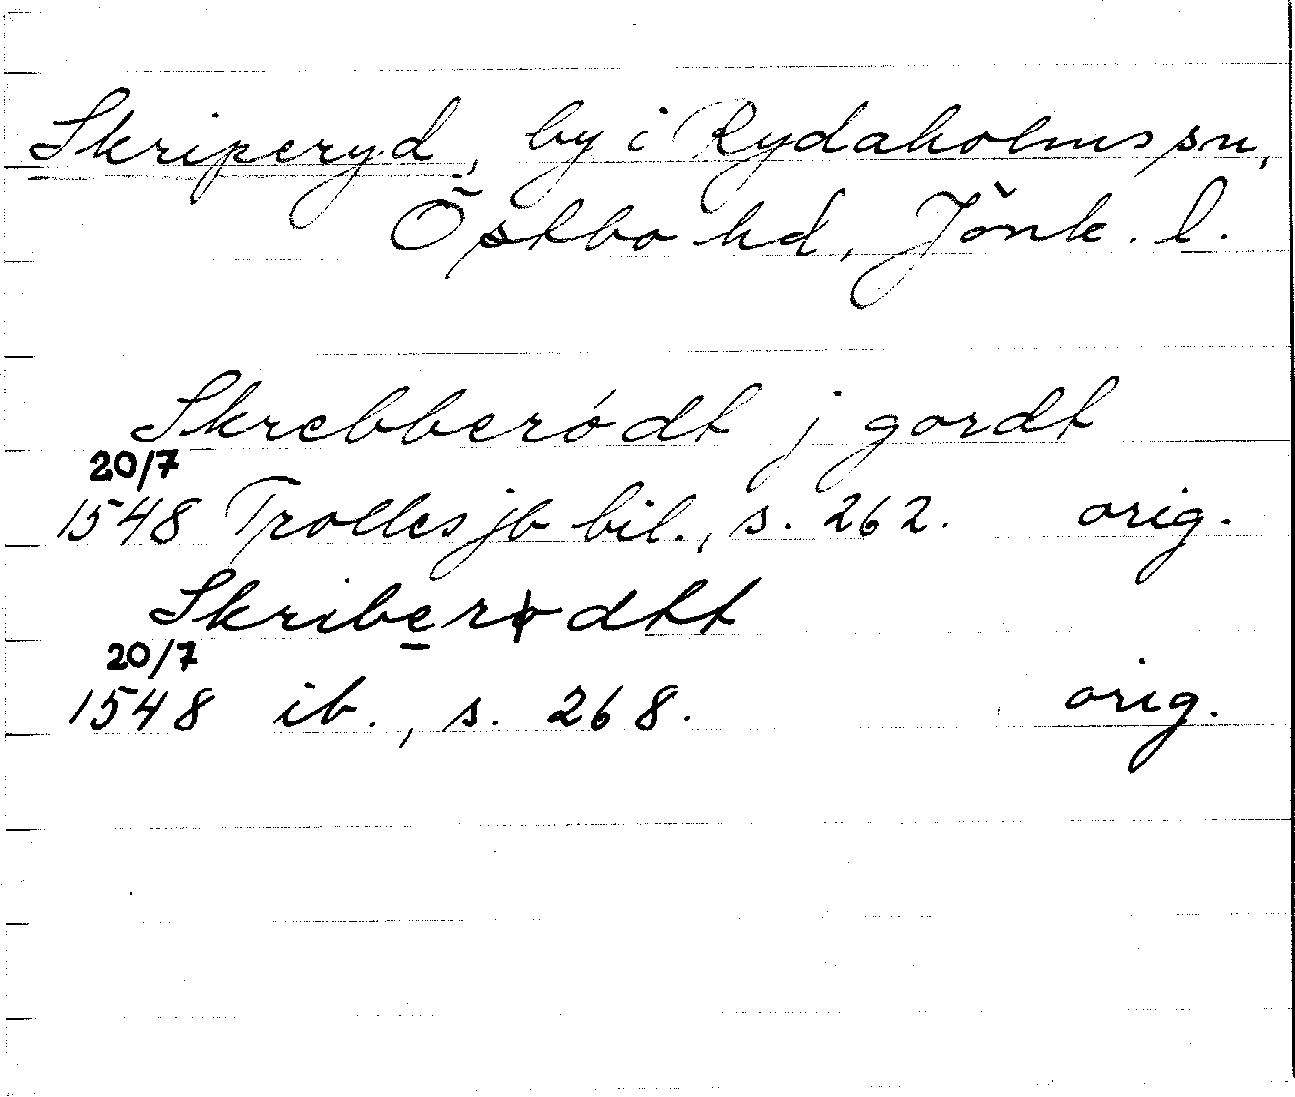 Skriperyd, by i Rydaholms sn,
Östbo hd, Jönk. l.
Skrebberødt j gordt
20/7
1548 Trolles jb bil., s. 262. orig.
Skriberødtt
20/7
1548 ib., s. 268. orig.